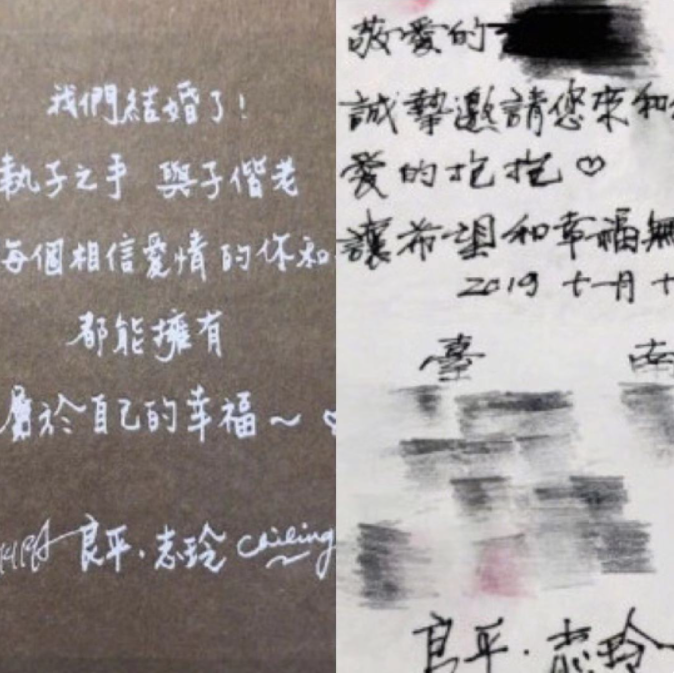 我們結婚了！
執子之手 與子偕老
每個相信愛情的你和
都能擁有
屬於自己的幸福～♡
良平．志玲 Chiling
敬愛的
誠摯邀請您來和
愛的抱抱♡
讓希望和幸福無
2019 十一月 十
臺 南
良平．志玲